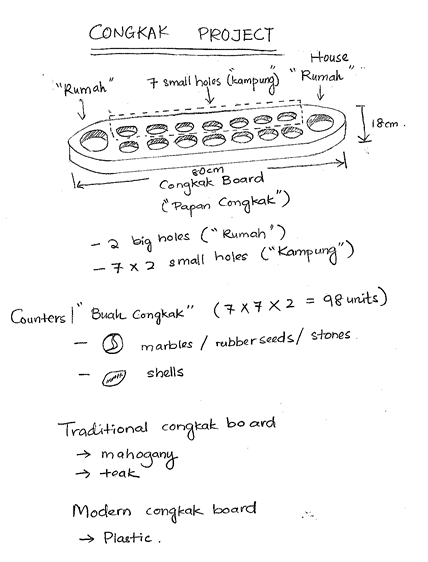 CONGKAK PROJECT
House
"Rumah" 7 small holes ("kampung) "Rumah"
18cm.
80cm
Congkak Board
("Papan Congkak")
- 2 big holes ("Rumah")
- 7 x 2 small holes ("Kampung")
Counters / "Buah Congkak" (7 x 7 x 2 = 98 units)
- marbles / rubber seeds / stones
- shells
Traditional congkak board
→ mahogany
→ teak
Modern congkak board
→ Plastic.